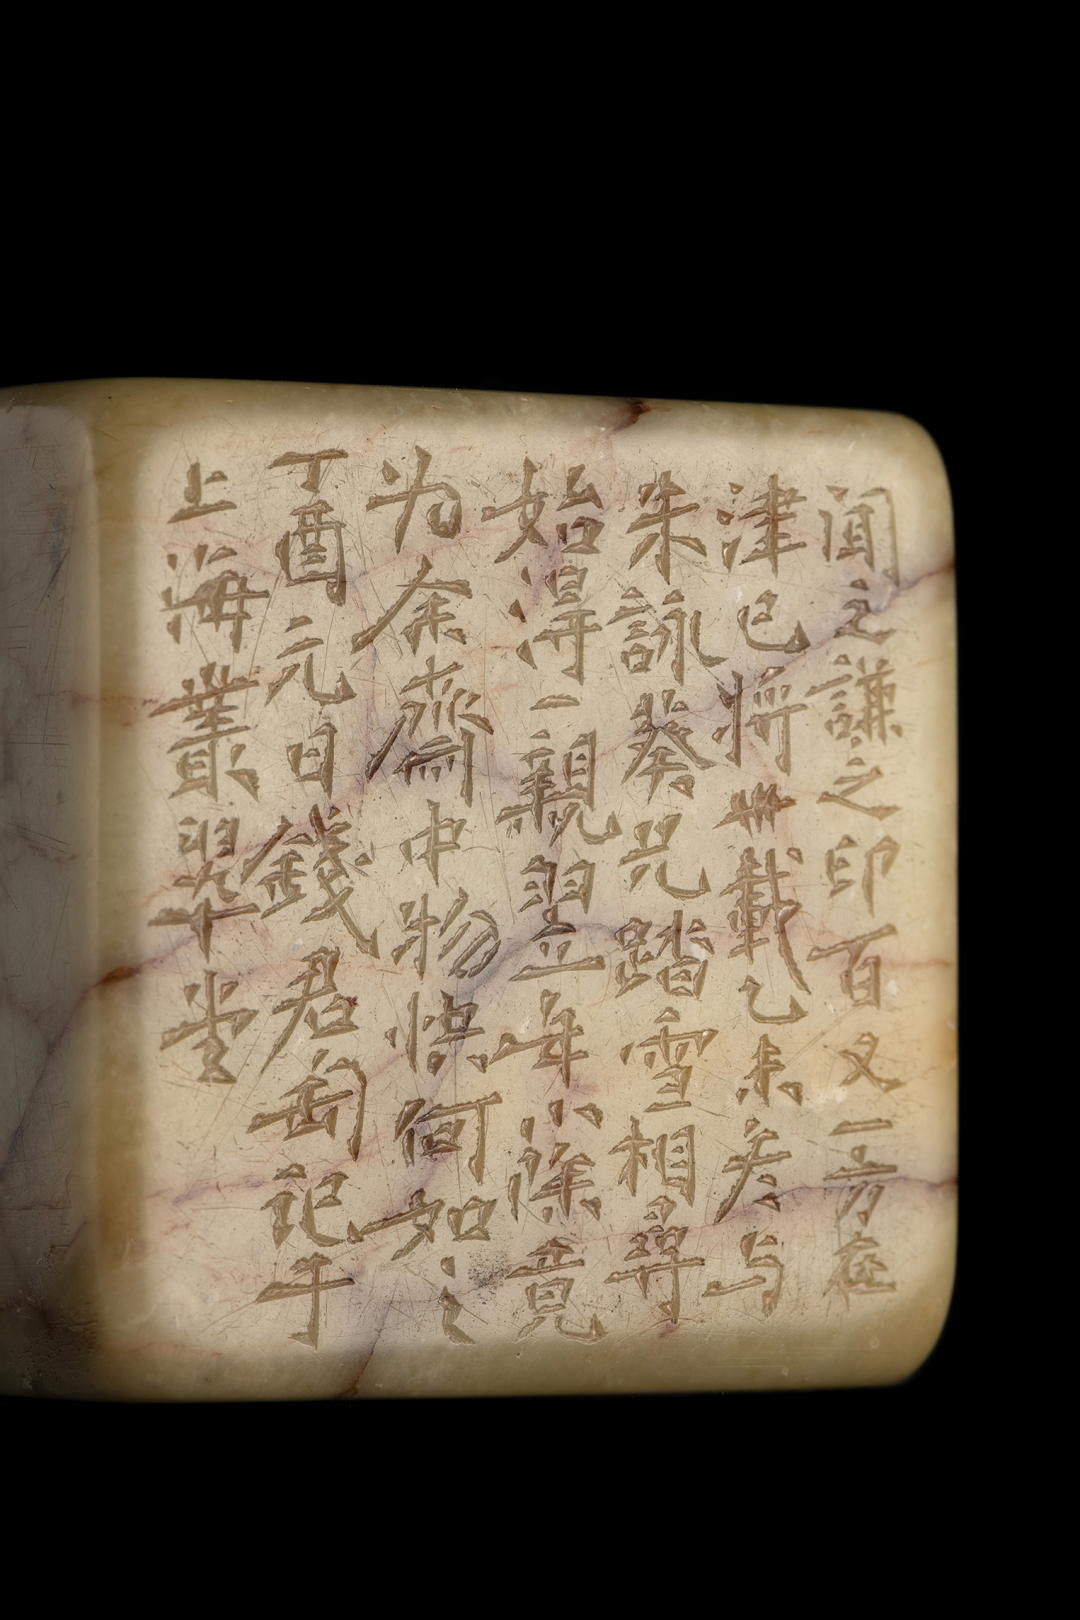 闻之謙之印百又一方在
津已將卅載乙未冬与
朱詠葵兄踏雪相尋
始得一親翌年小除竟
为余齋中物快何如之
丁酉元日錢君匋記于
上海叢翠堂